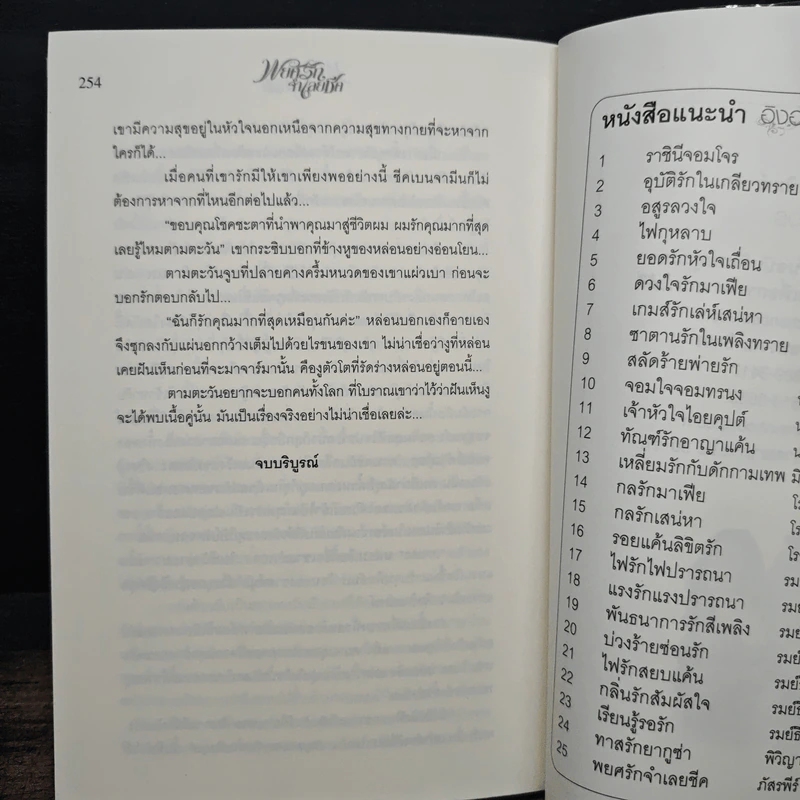 254
พยศรัก
จำเลยชีค
เขามีความสุขอยู่ในหัวใจนอกเหนือจากความสุขทางกายที่จะหาจาก
ใครก็ได้...
เมื่อคนที่เขารักมีให้เขาเพียงพออย่างนี้ ชีคเบนจามีนก็ไม่
ต้องการหาจากที่ไหนอีกต่อไปแล้ว...
“ขอบคุณโชคชะตาที่นำพาคุณมาสู่ชีวิตผม ผมรักคุณมากที่สุด
เลยรู้ไหมตามตะวัน” เขากระซิบบอกที่ข้างหูของหล่อนอย่างอ่อนโยน...
ตามตะวันจูบที่ปลายคางครึ้มหนวดของเขาแผ่วเบา ก่อนจะ
บอกรักตอบกลับไป...
“ฉันก็รักคุณมากที่สุดเหมือนกันค่ะ” หล่อนบอกเองก็อายเอง
จึงซุกลงกับแผ่นอกกว้างเต็มไปด้วยไรขนของเขา ไม่น่าเชื่อว่างูที่หล่อน
เคยฝันเห็นก่อนที่จะมาจาร์มานั้น คืองูตัวโตที่รัดร่างหล่อนอยู่ตอนนี้...
ตามตะวันอยากจะบอกคนทั้งโลก ที่โบราณเขาว่าไว้ว่าฝันเห็นงู
จะได้พบเนื้อคู่นั้น มันเป็นเรื่องจริงอย่างไม่น่าเชื่อเลยล่ะ...
จบบริบูรณ์
หนังสือแนะนำ
1 ราชินีจอมโจร
2 อุบัติรักในเกลียวทราย
3 อสูรลวงใจ
4 ไฟกุหลาบ
5 ยอดรักหัวใจเถื่อน
6 ดวงใจรักมาเฟีย
7 เกมส์รักเล่ห์เสน่หา
8 ซาตานรักในเพลิงทราย
9 สลัดร้ายพ่ายรัก
10 จอมใจจอมทรนง
11 เจ้าหัวใจไอยคุปต์
12 ทัณฑ์รักอาญาแค้น
13 เหลี่ยมรักกับดักกามเทพ
14 กลรักมาเฟีย
15 กลรักเสน่หา
16 รอยแค้นลิขิตรัก
17 ไฟรักไฟปรารถนา
18 แรงรักแรงปรารถนา
19 พันธนาการรักสีเพลิง
20 บ่วงร้ายซ่อนรัก
21 ไฟรักสยบแค้น
22 กลิ่นรักสัมผัสใจ
23 เรียนรู้รอรัก
24 ทาสรักยากูซ่า
25 พยศรักจำเลยชีค ภัสรพีร์